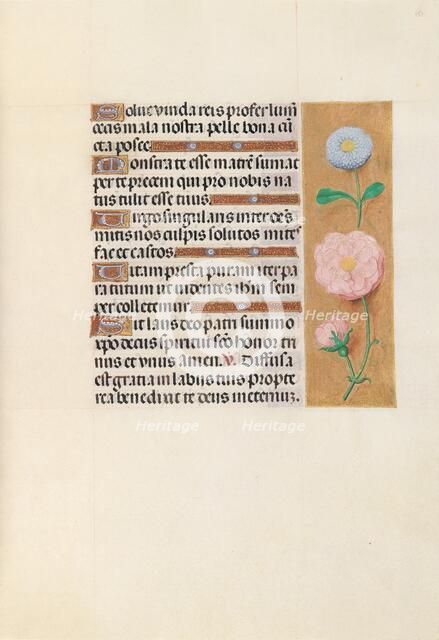 Solve vincla reis profer lum̄
cecis mala nostra pelle bona cū
cta posce
Monstra te esse matrē sumat
per te precem qui pro nobis na
tus tulit esse tuus
Virgo singularis inter oēs
mitis nos culpis solutos mites
fac et castos
Vitam presta puram iter pa
ra tutum ut videntes ihm sem
per colletemur
Sit laus deo patri summo
xpo decus spiritui scō honor tri
nus et vnus Amen. V. Diffusa
est gratia in labiis tuis propte
rea benedixit te deus in eternū.
Heritage Heritage Heritage
Heritage Heritage Heritage